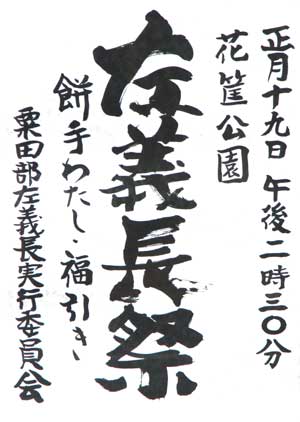 正月十九日 午後二時三〇分
花筐公園
左義長祭
餅手わたし・福引き
粟田部左義長実行委員会